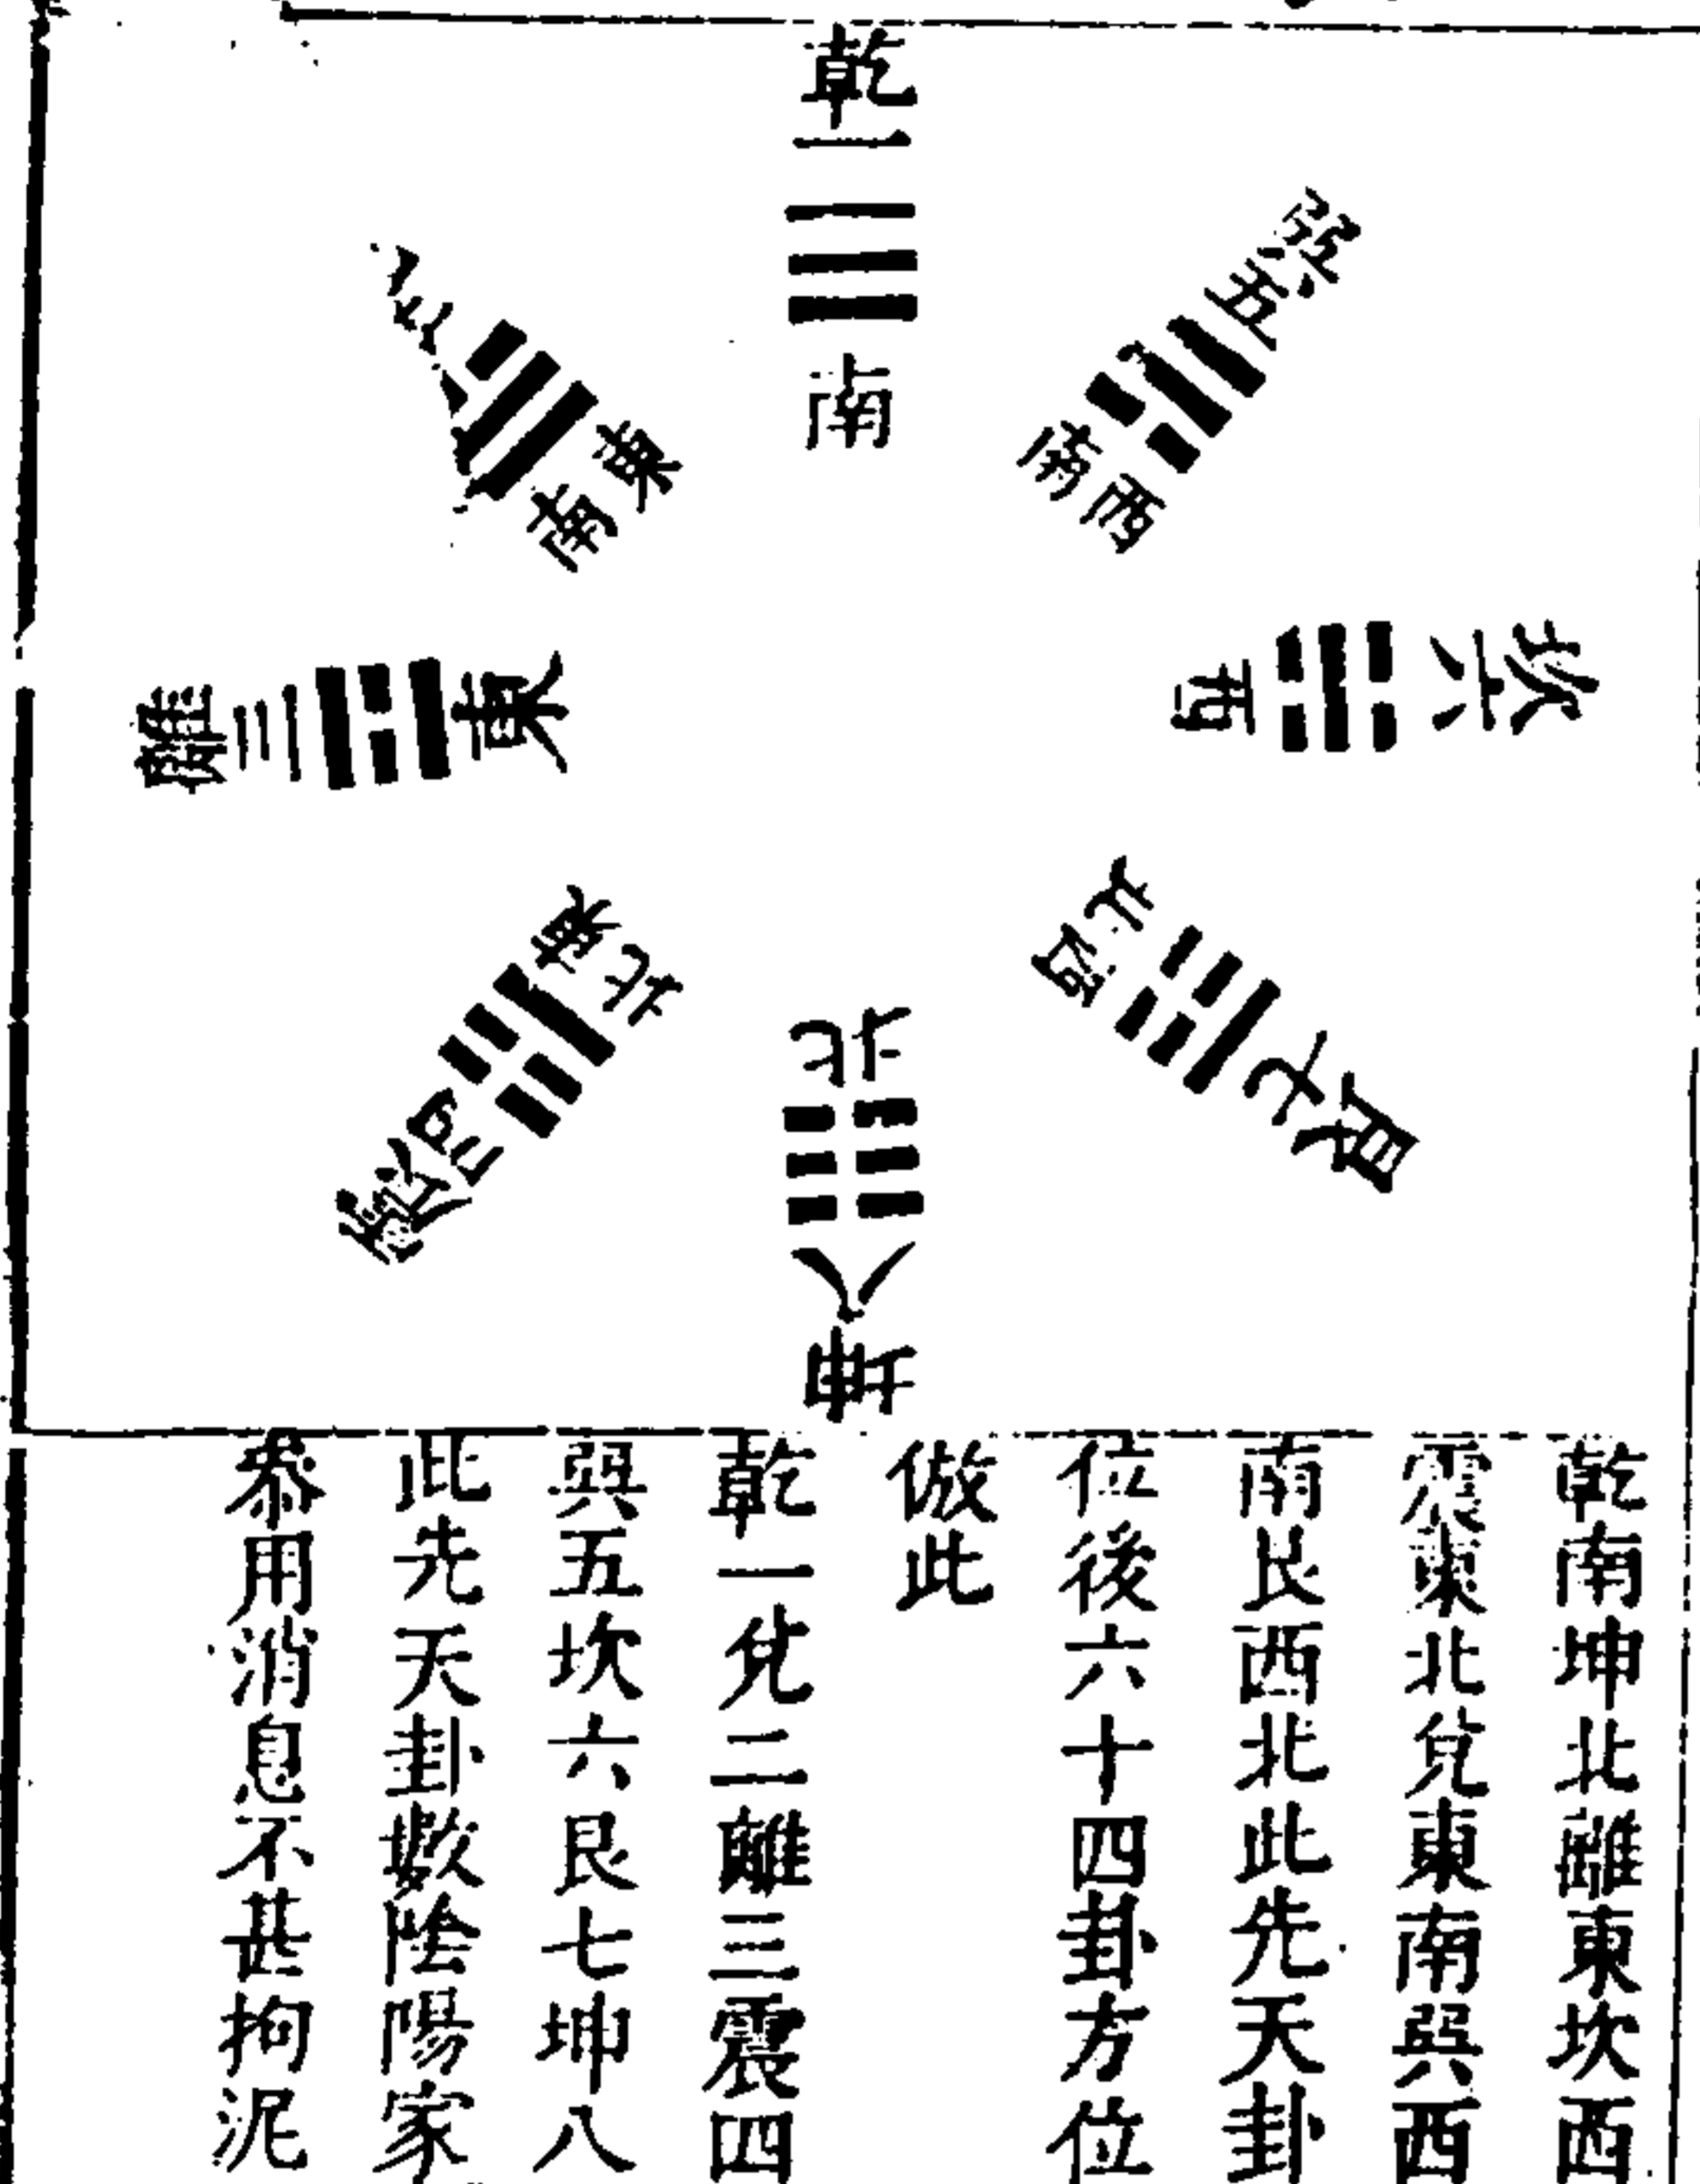 乾一
南
巽五
西南
坎六
西
艮七
西北
坤八
北
震四
東北
離三
東
東南
乾南坤北離東坎西
震東北兌東南巽西
南艮西北此先天卦
位後六十四卦方位
倣此
乾一兌二離三震四
巽五坎六艮七坤八
此先天卦數陰陽家
叅用消息不甚拘泥